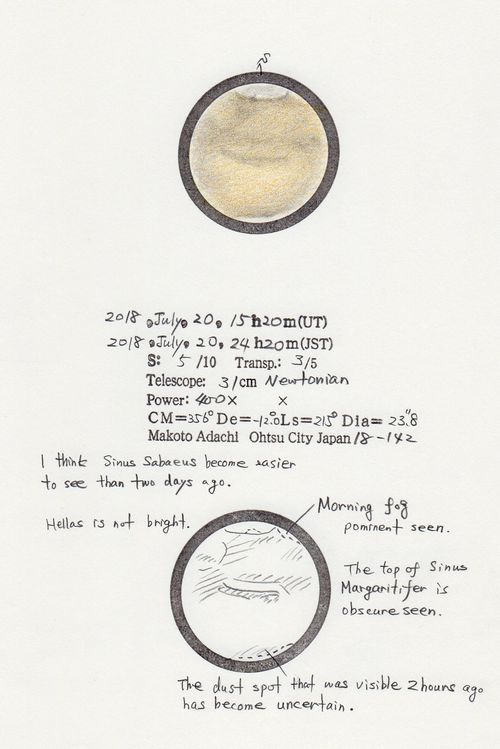 S
2018, July, 20, 15h20m(UT)
2018, July, 20, 24h20m(JST)
S: 5/10 Transp.: 3/5
Telescope: 31cm Newtonian
Power: 400× ×
CM=356° De=-12.0° Ls=215° Dia=23".8
Makoto Adachi Ohtsu City Japan 18-142
I think Sinus Sabaeus become easier
to see than two days ago.
Hellas is not bright.
Morning fog
pominent seen.
The top of Sinus
Margaritifer is
obscure seen.
The dust spot that was visible 2hours ago
has become uncertain.